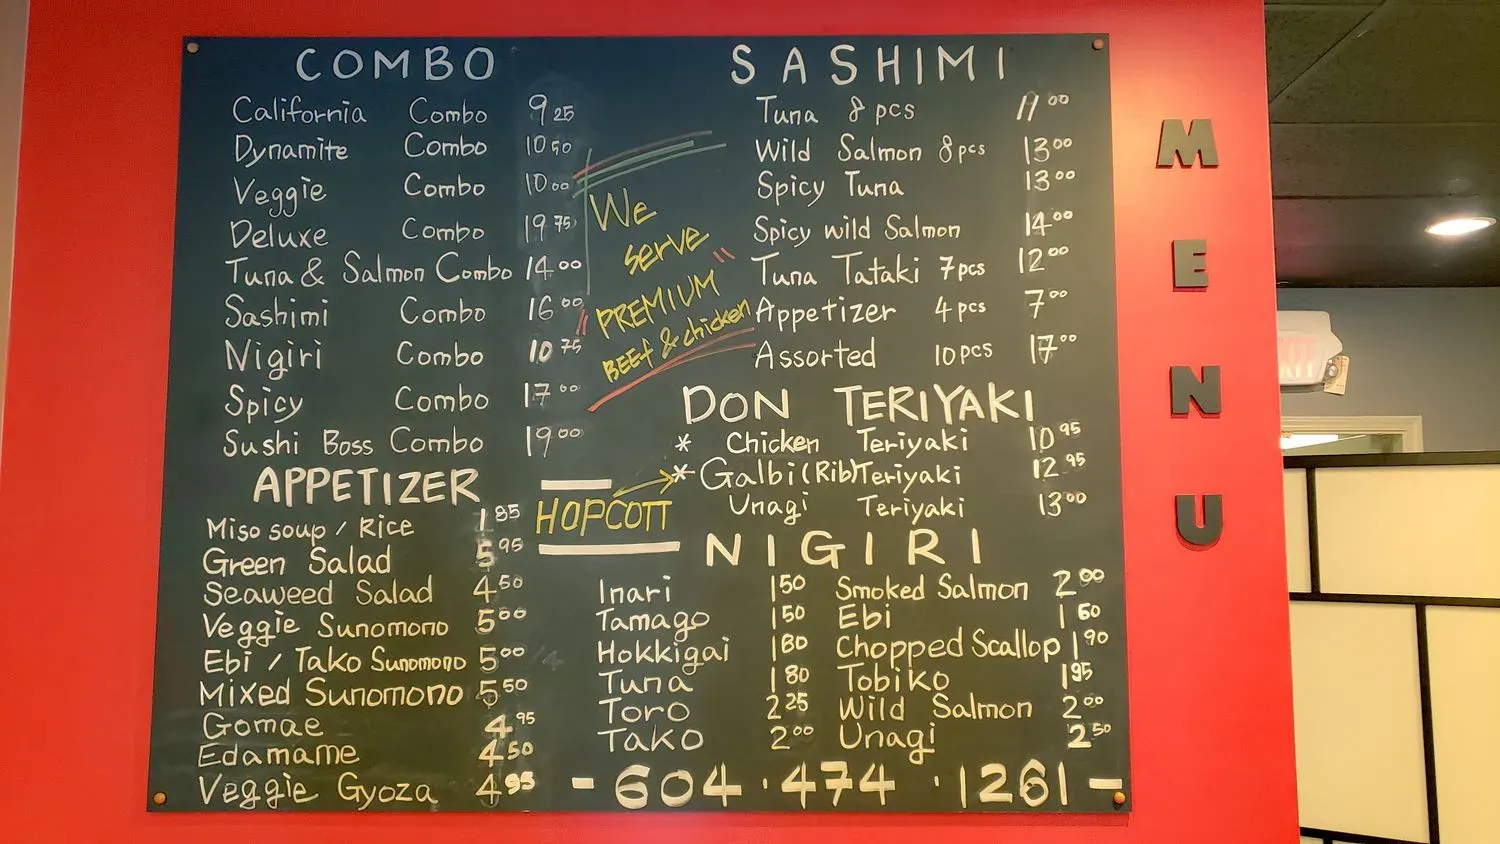 COMBO
California Combo 9 25
Dynamite Combo 10 50
Veggie Combo 10 00
Deluxe Combo 19 75
Tuna & Salmon Combo 14 00
Sashimi Combo 16 00
Nigiri Combo 10 75
Spicy Combo 17 00
Sushi Boss Combo 19 00
APPETIZER
Miso soup / Rice 1 85
Green Salad 5 95
Seaweed Salad 4 50
Veggie Sunomono 5 00
Ebi / Tako Sunomono 5 00
Mixed Sunomono 5 50
Gomae 4 95
Edamame 4 50
Veggie Gyoza 4 95
We
serve
"PREMIUM"
BEEf & chicken
HOPCOTT
SASHIMI
Tuna 8 pcs 11 00
Wild Salmon 8 pcs 13 00
Spicy Tuna 13 00
Spicy wild Salmon 14 00
Tuna Tataki 7 pcs 12 00
Appetizer 4 pcs 7 00
Assorted 10 pcs 17 00
DON TERIYAKI
* Chicken Teriyaki 10 95
* Galbi (Rib) Teriyaki 12 95
Unagi Teriyaki 13 00
NIGIRI
Inari 1 50 Smoked Salmon 2 00
Tamago 1 50 Ebi 1 60
Hokkigai 1 80 Chopped Scallop 1 90
Tuna 1 80 Tobiko 1 95
Toro 2 25 Wild Salmon 2 00
Tako 2 00 Unagi 2 50
- 604 · 474 · 1261 -
MENU